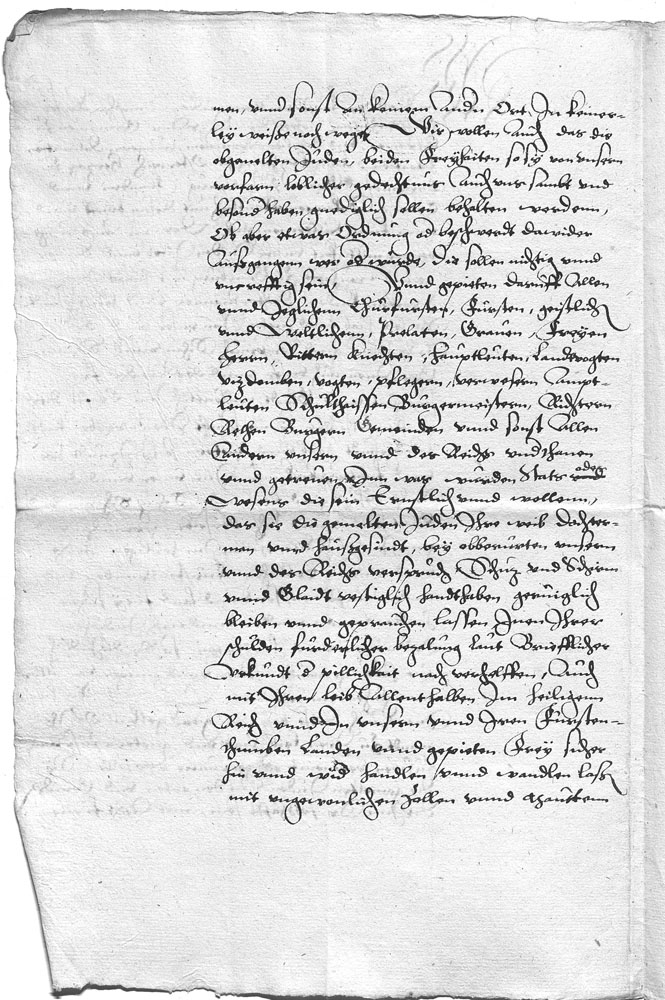 men, vnnd sonst an keinem Andn Ort, In keiner-
ley weiße noch wege, Wir wollen Auch das die
obgemelten Juden, beiden Freyhaiten so sy von vnsern
vorfarn loblicher gedechtnus Auch vns sambt vnd
besond haben gnediglich sollen behalten werdenn,
Ob aber etwas Ordnung od beschwerdt dawider
Außgangenn wer od wurde, die sollen nichtig vnnd
vncrefftig sein, Vnnd gepieten daruff Allen
vnnd Jeglichenn Churfursten, Fursten, geistlich
vnnd Weltlichenn, Prelaten, Grauen, Freyen
Herrn, Rittern knechten, Hauptleuten, Landtvogten
vizdomben, vogten, pflegern, verwesern Ampt-
leuten Schulthaissen Burgermeistern, Richtern
Rethen Burgern Gemeinden vnnd sonst Allen
Andern vnsern vnnd des Reichs vnderthanen
vnnd getreuen, Inn was wurden Stats oder
Wesens die sein Ernstlich vnnd wollenn,
das sie die gemelten Juden Ihre weib dochter-
men vnnd haußgesindt, bey obberurten vnsern
vnnd des Reichs verspruch Schuz vnd Schirm
vnnd Glaidt vestiglich handthaben geruiglich
bleiben vnnd geprauchen lassen Inen Ihrer
schulden furderlicher bezalung laut Briefflicher
Vrkundt d pillichkeit nach verhelffen, Auch
mit Ihren leib Allenthalben Im heiligenn
Reich vnnd In vnsern vnnd Iren Fursten-
thumben Landen vnnd gepieten Frey sicher
hin vnnd wid handlen vnnd wandlen lass
mit vngewonlichen Zollen vnnd Mauttenn